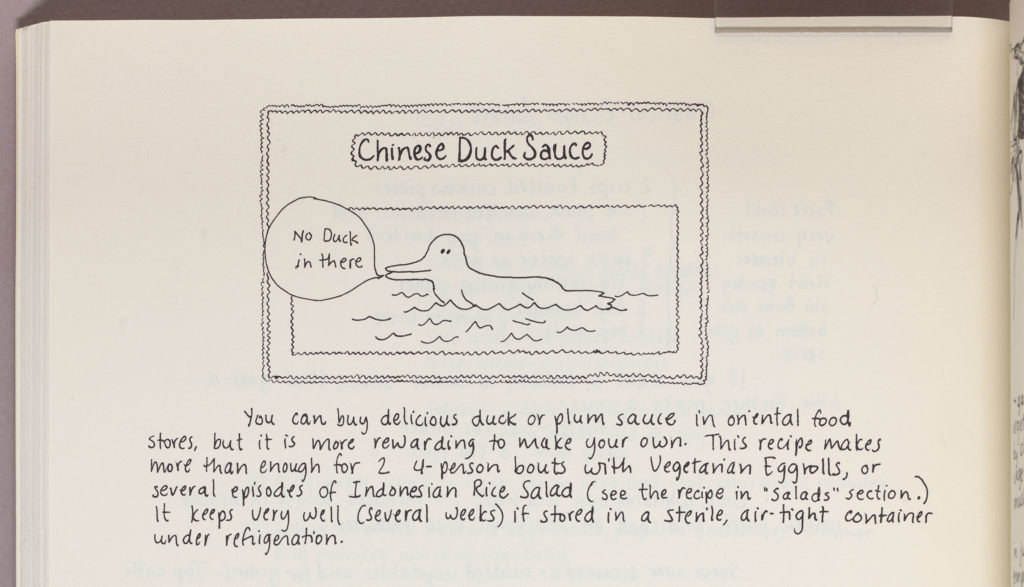 Chinese Duck Sauce
No Duck
in there
You can buy delicious duck or plum sauce in oriental food
stores, but it is more rewarding to make your own. This recipe makes
more than enough for 2 4-person bouts with Vegetarian Eggrolls, or
several episodes of Indonesian Rice Salad (see the recipe in "Salads" section.)
It keeps very well (several weeks) if stored in a sterile, air-tight container
under refrigeration.